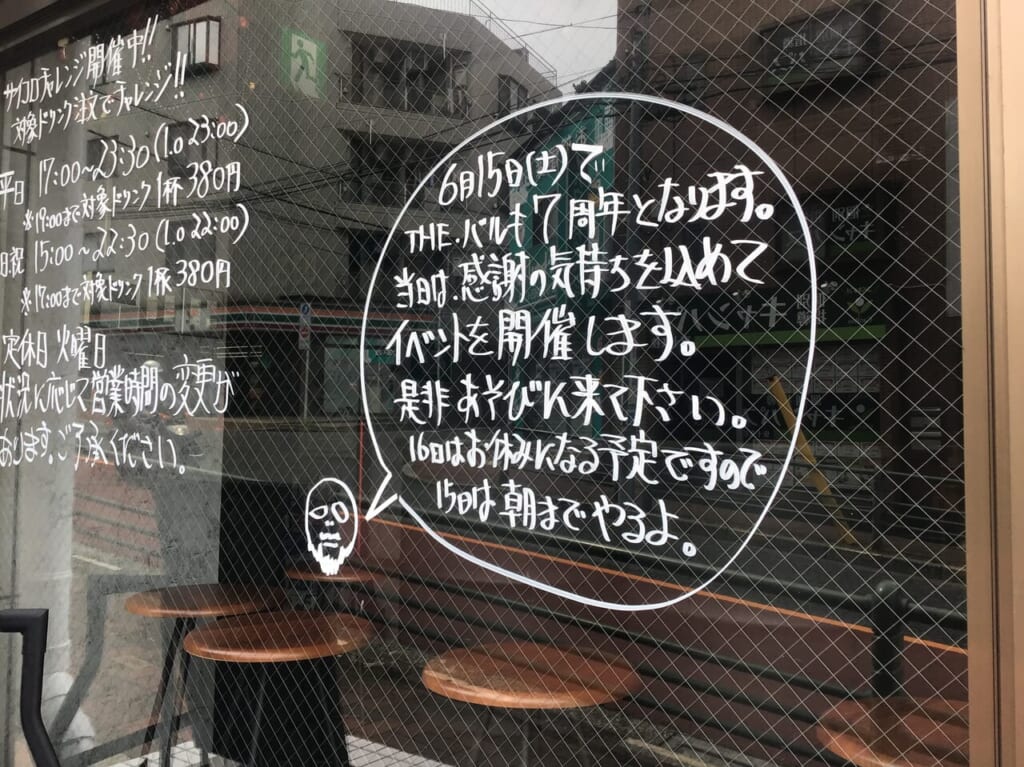 サイコロチャレンジ開催中!!
対象ドリンク注文でチャレンジ!!
平日 17:00~23:30(l.o 23:00)
※19:00まで対象ドリンク1杯380円
日祝 15:00~22:30(l.o 22:00)
※17:00まで対象ドリンク1杯380円
定休日 火曜日
状況に応じて営業時間の変更が
あります。ご了承ください。
6月15日(土)で
THE・バルも7周年となります。
当日は、感謝の気持ちを込めて
イベントを開催します。
是非あそびに来て下さい。
16日はお休みになる予定ですので
15日は朝までやるよ。